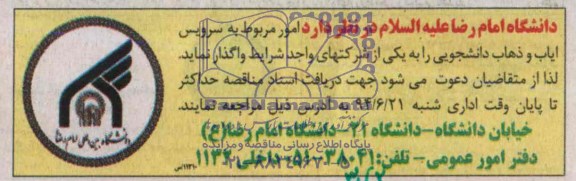 دانشگاه امام رضا علیه السلام در نظر دارد امور مربوط به سرویس
ایاب و ذهاب دانشجویی را به یکی از شرکتهای واجد شرایط واگذار نماید.
لذا از متقاضیان دعوت می شود جهت دریافت اسناد مناقصه حداکثر
تا پایان وقت اداری شنبه ۹۴/۶/۲۱ به آدرس ذیل مراجعه نمایند.
خیابان دانشگاه - دانشگاه ۲۱ - دانشگاه امام رضا(ع)
دفتر امور عمومی - تلفن: ۳۸۰۴۱-۰۵۱ داخلی ۱۱۳۲
پایگاه اطلاع رسانی مناقصه و مزایده
دانشگاه بین المللی امام رضا